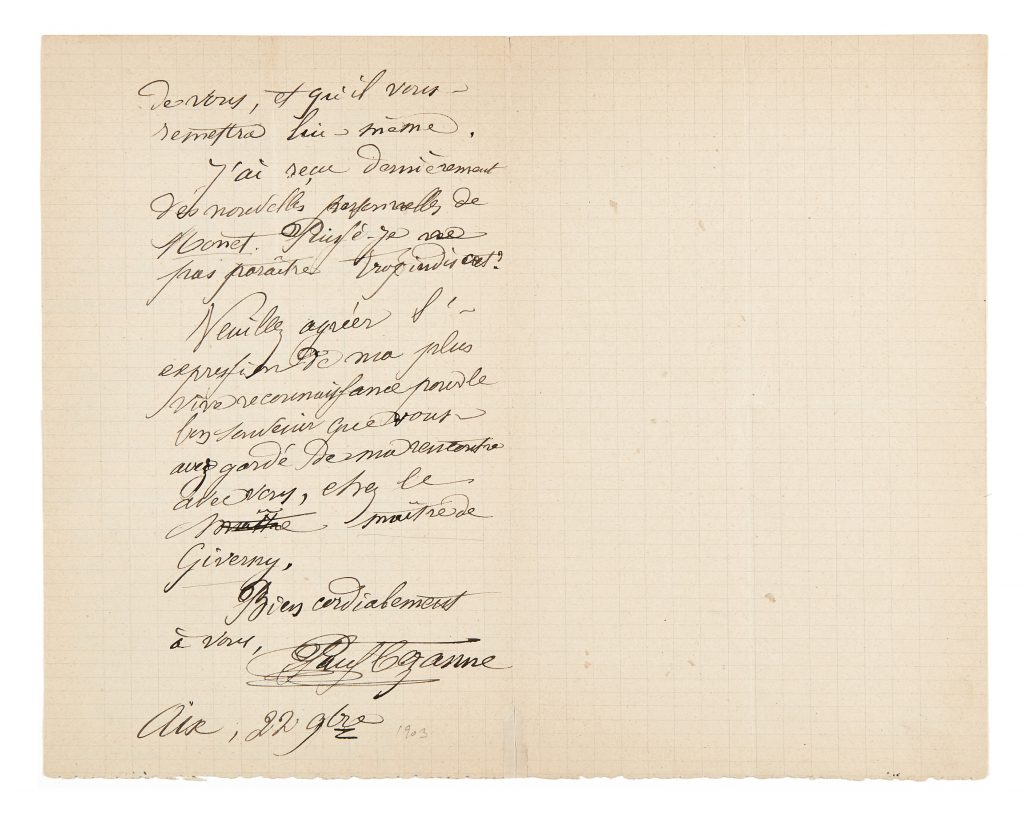 de vous, et qu'il vous –
remettra lui-même.
J'ai reçu dernièrement
des nouvelles personnelles de
Monet. Puissé-je ne
pas paraître trop indiscret?
Veuillez agréer l' –
expression de ma plus
vive reconnaissance pour le
bon souvenir que vous –
avez gardé de ma rencontre
avec vous, chez le
maître maître de
Giverny,
Bien cordialement
à vous,
Paul Cezanne
Aix, 22 9bre
1903